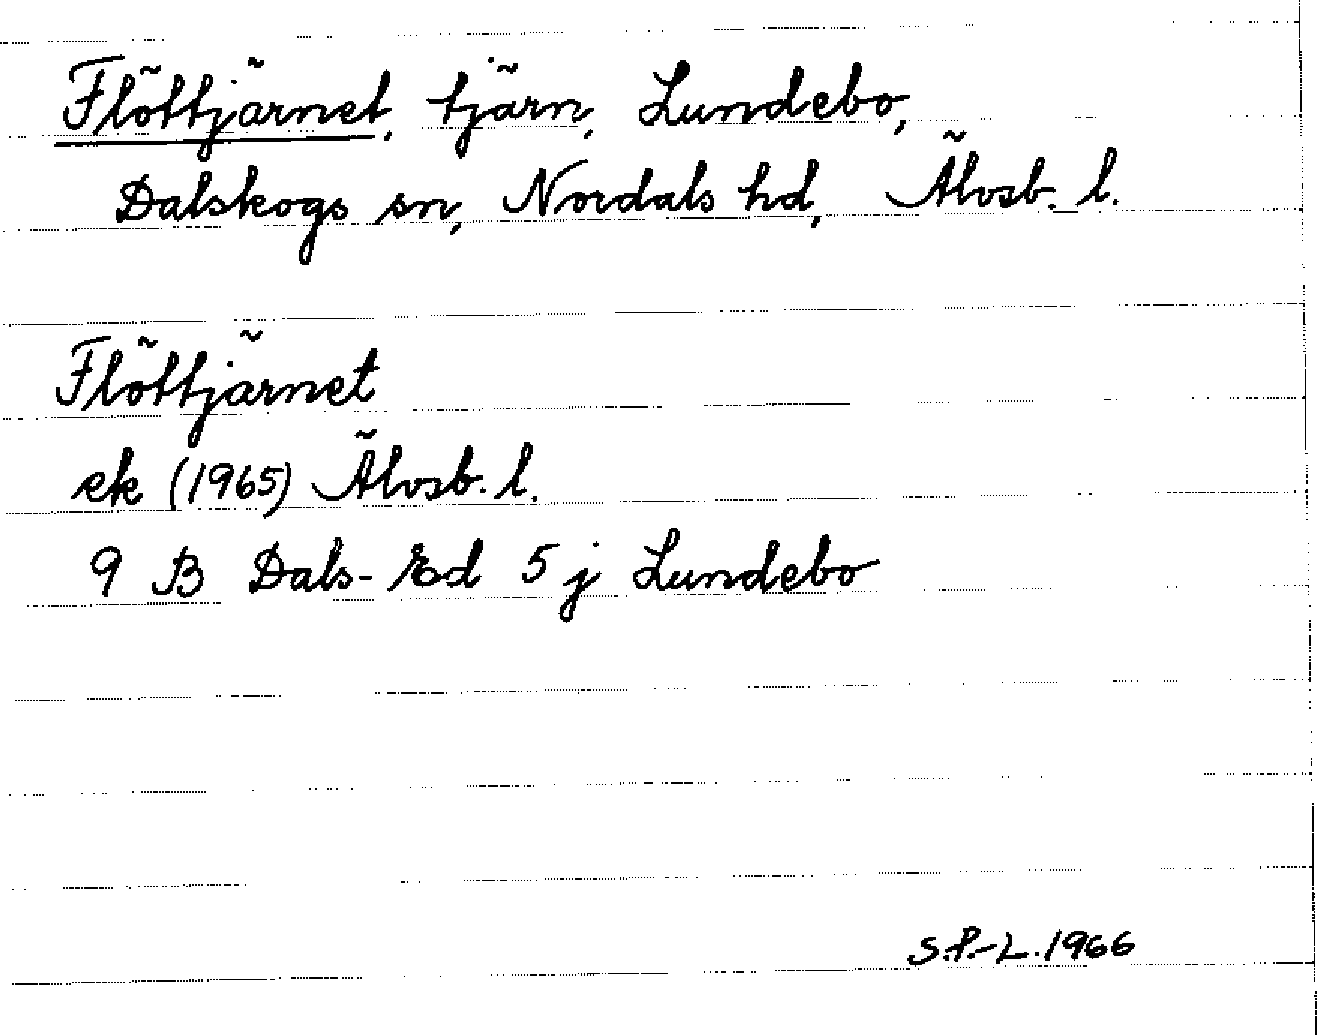 Flöttjärnet, tjärn, Lundebo,
Dalskogs sn, Nordals hd, Älvsb. l.
Flöttjärnet
ek (1965) Älvsb. l.
9 B Dals-Ed 5 j Lundebo
S.P.-L. 1966